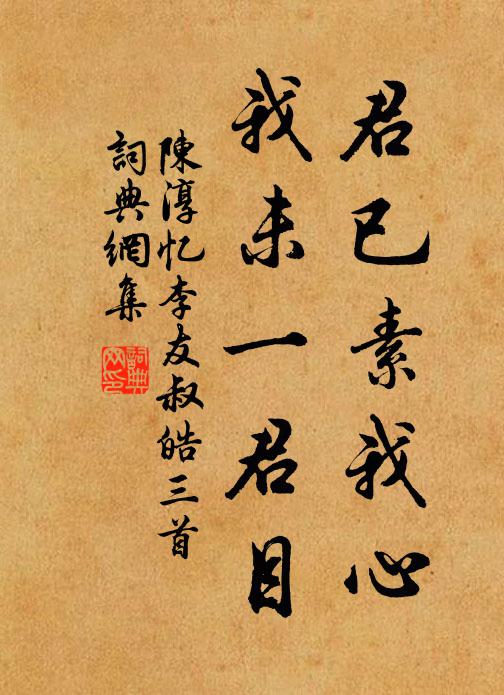 君已素我心
我未一君目
陳淳忆李友叔皓三首
詞典網集
詞典网印